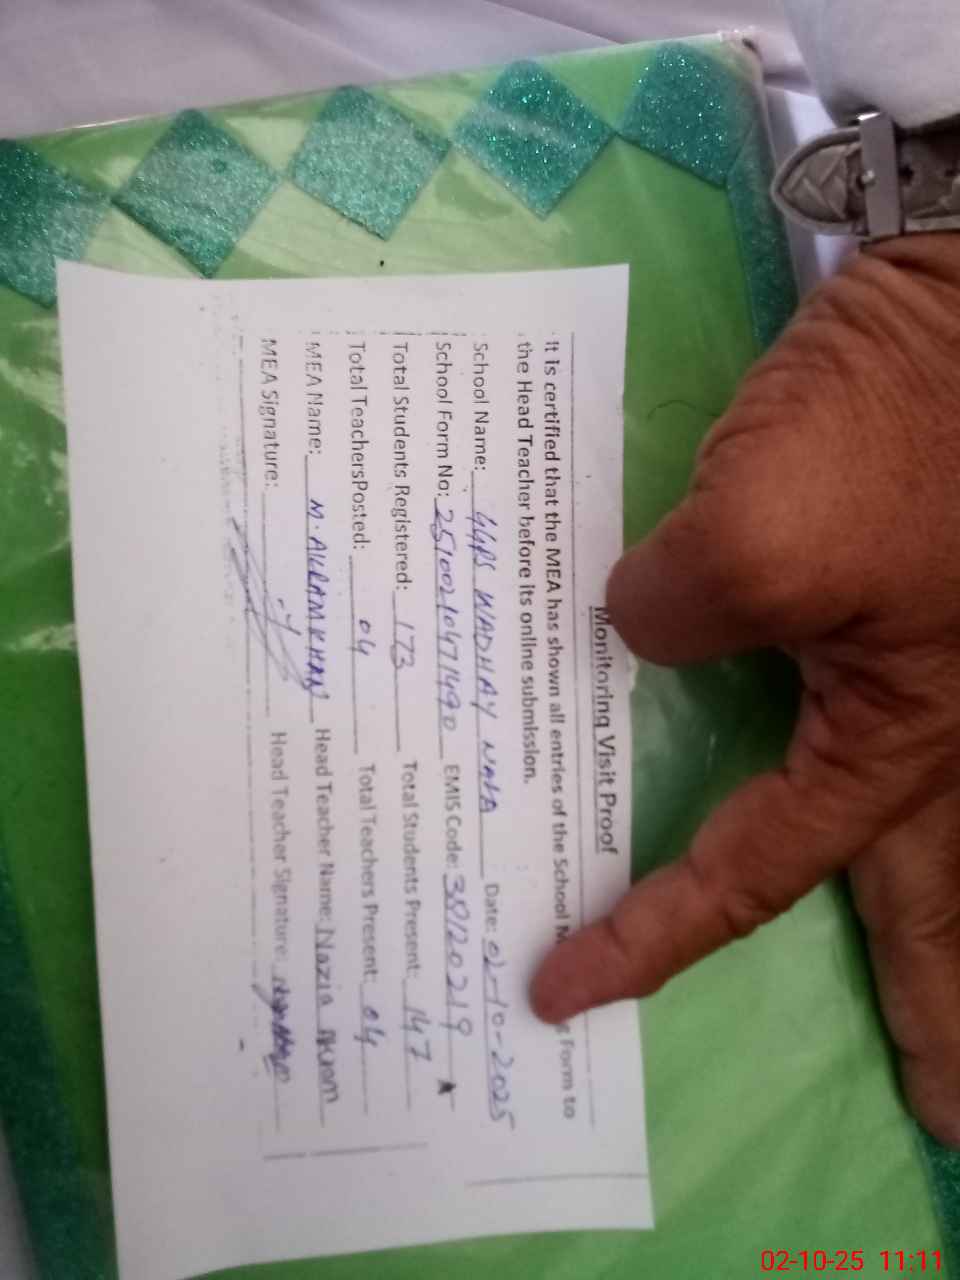 Monitoring Visit Proof
It is certified that the MEA has shown all entries of the School Form to
the Head Teacher before its online submission.
School Name: GGPS WADHAY Date: 02-10-2025
School Form No: 25100210471490 EMIS Code: 38120219
Total Students Registered: 173 Total Students Present: 147
Total TeachersPosted: 04 Total Teachers Present: 04
MEA Name: M. AKRAM KHAN Head Teacher Name: Nazia Akram
MEA Signature: Head Teacher Signature:
02-10-25 11:11